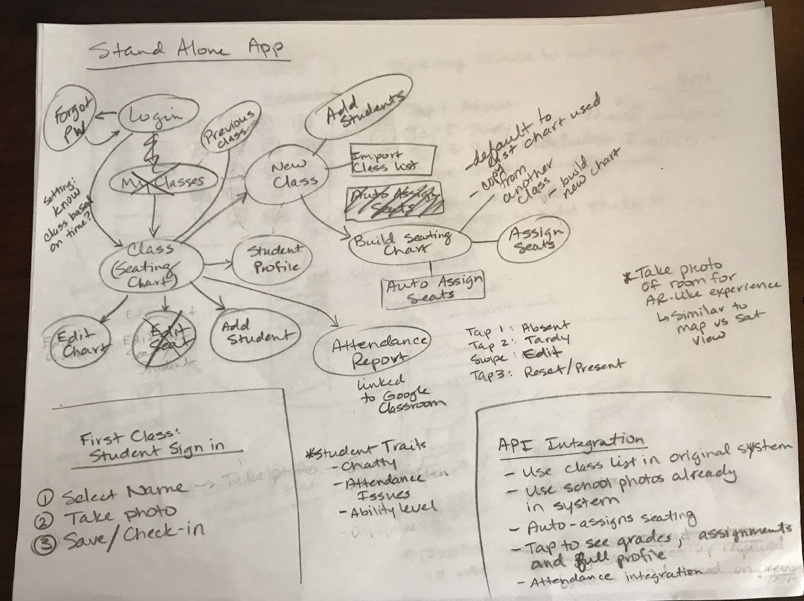 Stand Alone App
Forgot
PW
Login
Previous
class
Add
Students
My Classes
New
Class
Import
Class list
Auto Assign
Seats
- default to
last chart used
- copy
from
another
class
- build
new chart
Setting:
know
class based
on time?
Class
(Seating
Chart)
Student
Profile
Build Seating
Chart
Assign
Seats
Auto Assign
Seats
Edit
Chart
Edit
Seat
Add
Student
Attendance
Report
linked
to Google
Classroom
Tap 1: Absent
Tap 2: Tardy
Swipe: Edit
Tap 3: Reset/Present
* Take photo
of room for
AR-like experience
↳ similar to
map vs sat
view
First Class:
Student Sign in
① Select Name
② Take photo
③ Save/Check-in
* Student Traits
- Chatty
- Attendance
Issues
- Ability level
API Integration
- Use class list in original system
- Use school photos already
in system
- Auto-assigns seating
- Tap to see grades, assignments
and full profile
- Attendance integration